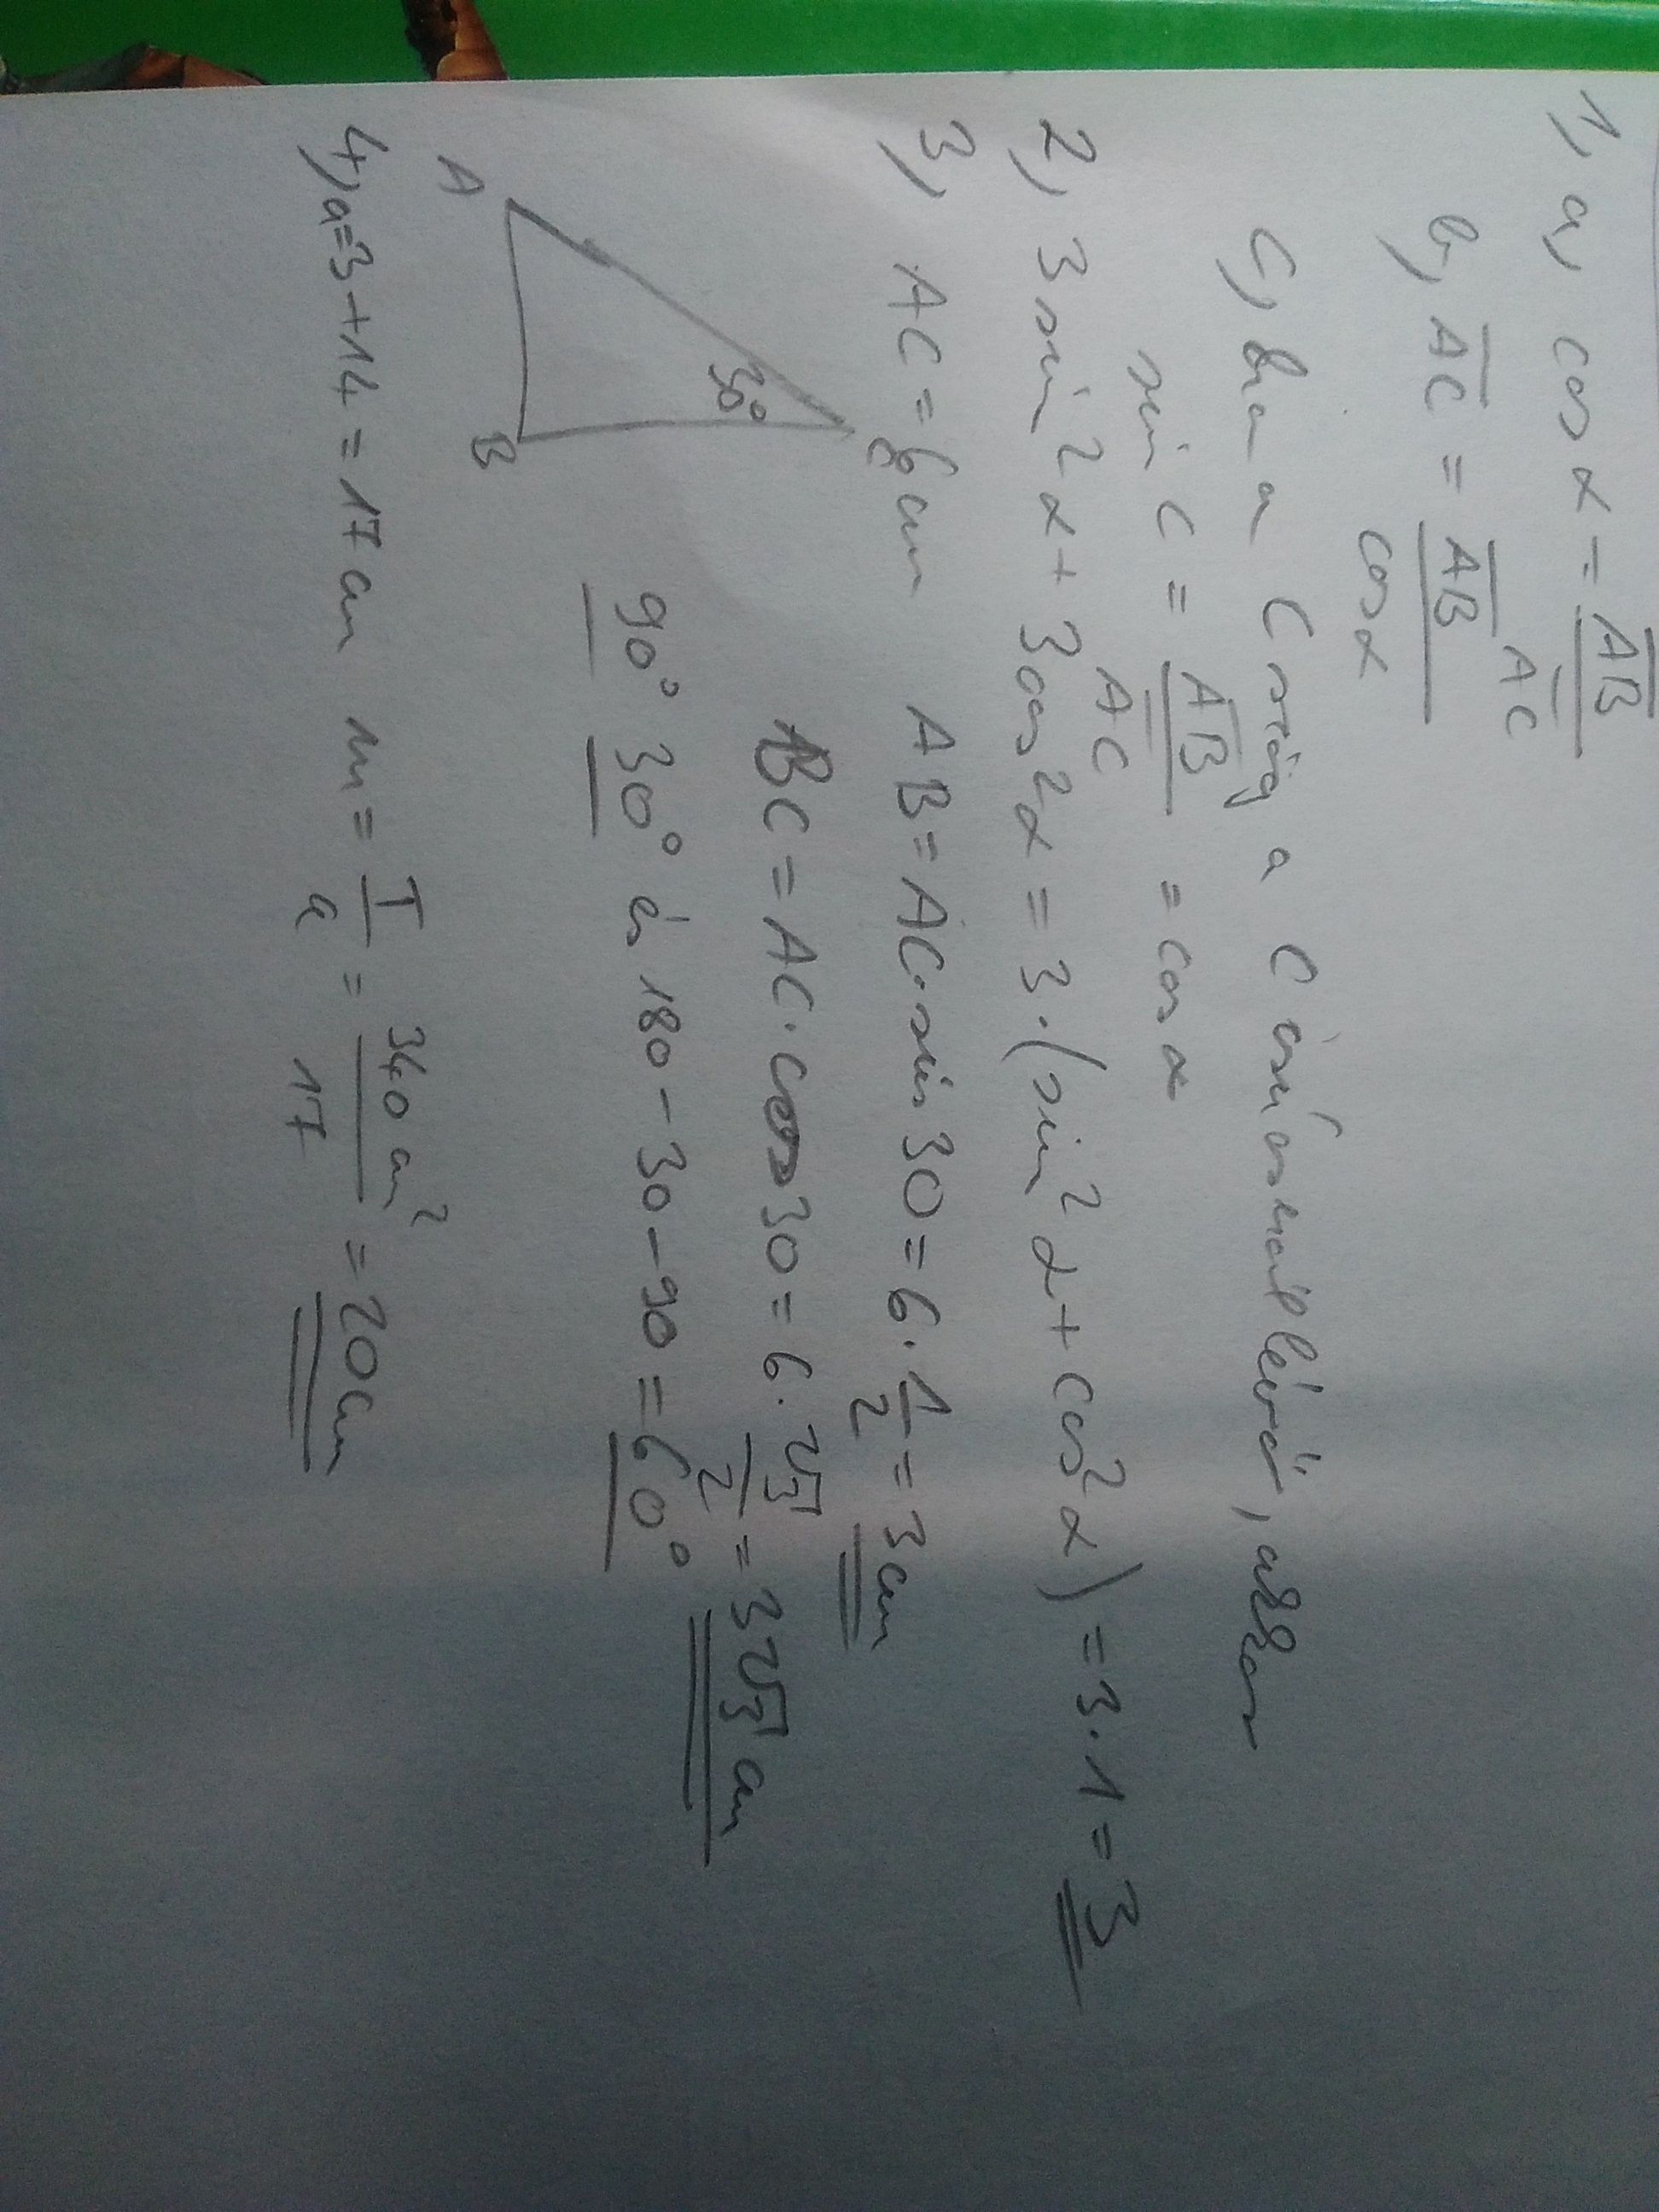 1, a, cos α = AB/AC
b, AC = AB/cos α
c, ha a C szög a C csúcsnál lévő, akkor
sin C = AB/AC = cos α
2, 3 sin² α + 3cos² α = 3·(sin² α + cos² α) = 3·1 = 3
3, AC = 6 cm AB = AC·sin 30 = 6·1/2 = 3 cm
BC = AC·cos 30 = 6·√3/2 = 3√3 cm
30°
A B C
90° 30° és 180-30-90 = 60°
4, a = 3+14 = 17 cm m = T/a = 340 cm²/17 = 20 cm